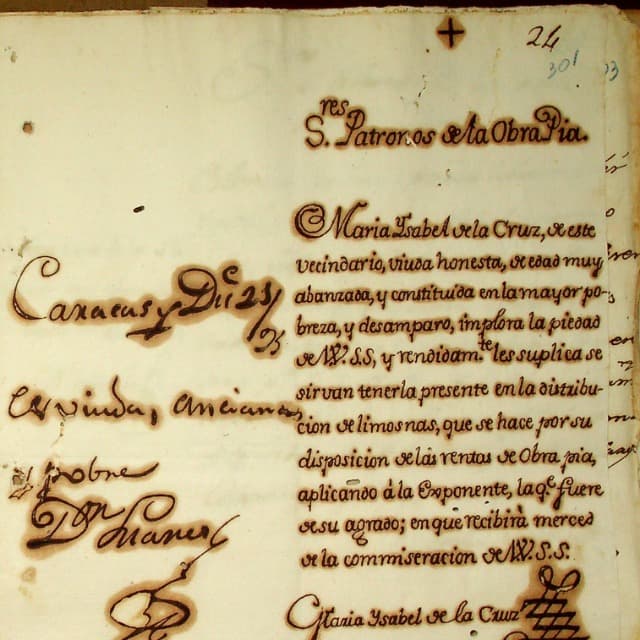 24
301
S.res Patronos de la Obra Pia.
Maria Ysabel de la Cruz, de este
vecindario, viuda honesta, de edad muy
abanzada, y constituida en la mayor po-
breza, y desamparo, implora la piedad
de VV.SS, y rendidam.te les suplica se
sirvan tenerla presente en la distribu-
cion de limosnas, que se hace por su
disposicion de las rentas de Obra pia,
aplicando á la Exponente, la q.e fuere
de su agrado; en que recibirà merced
de la commiseracion de VV.S.S.
Maria Ysabel de la Cruz
Caracas y D.e 23/
Es viuda, Anciana
y pobre